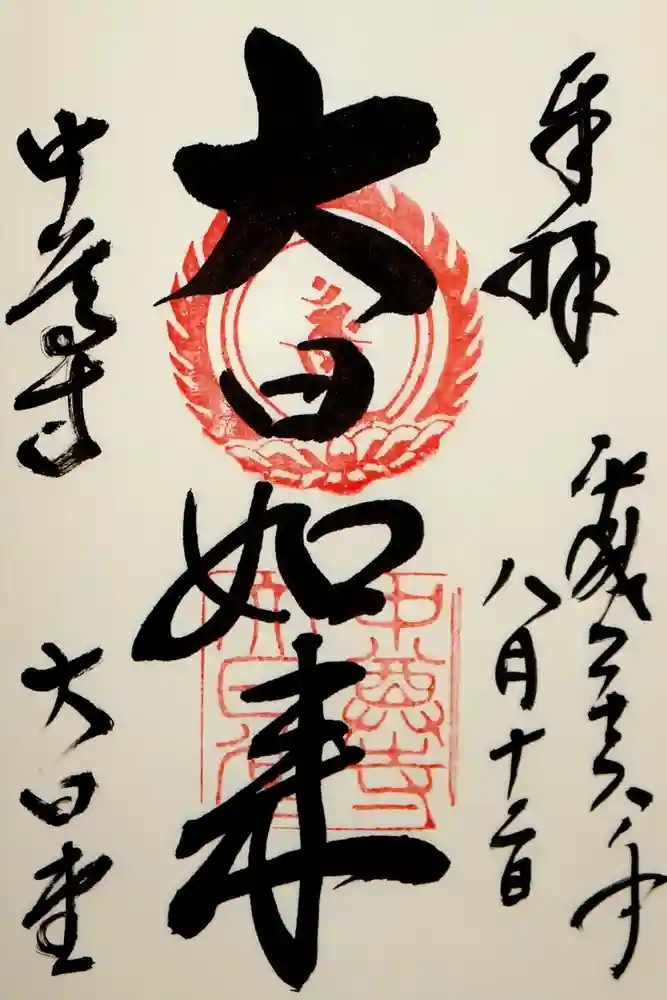 奉拝
平成二十六年
八月十二日
大日如来
中尊寺
中尊寺
大日堂